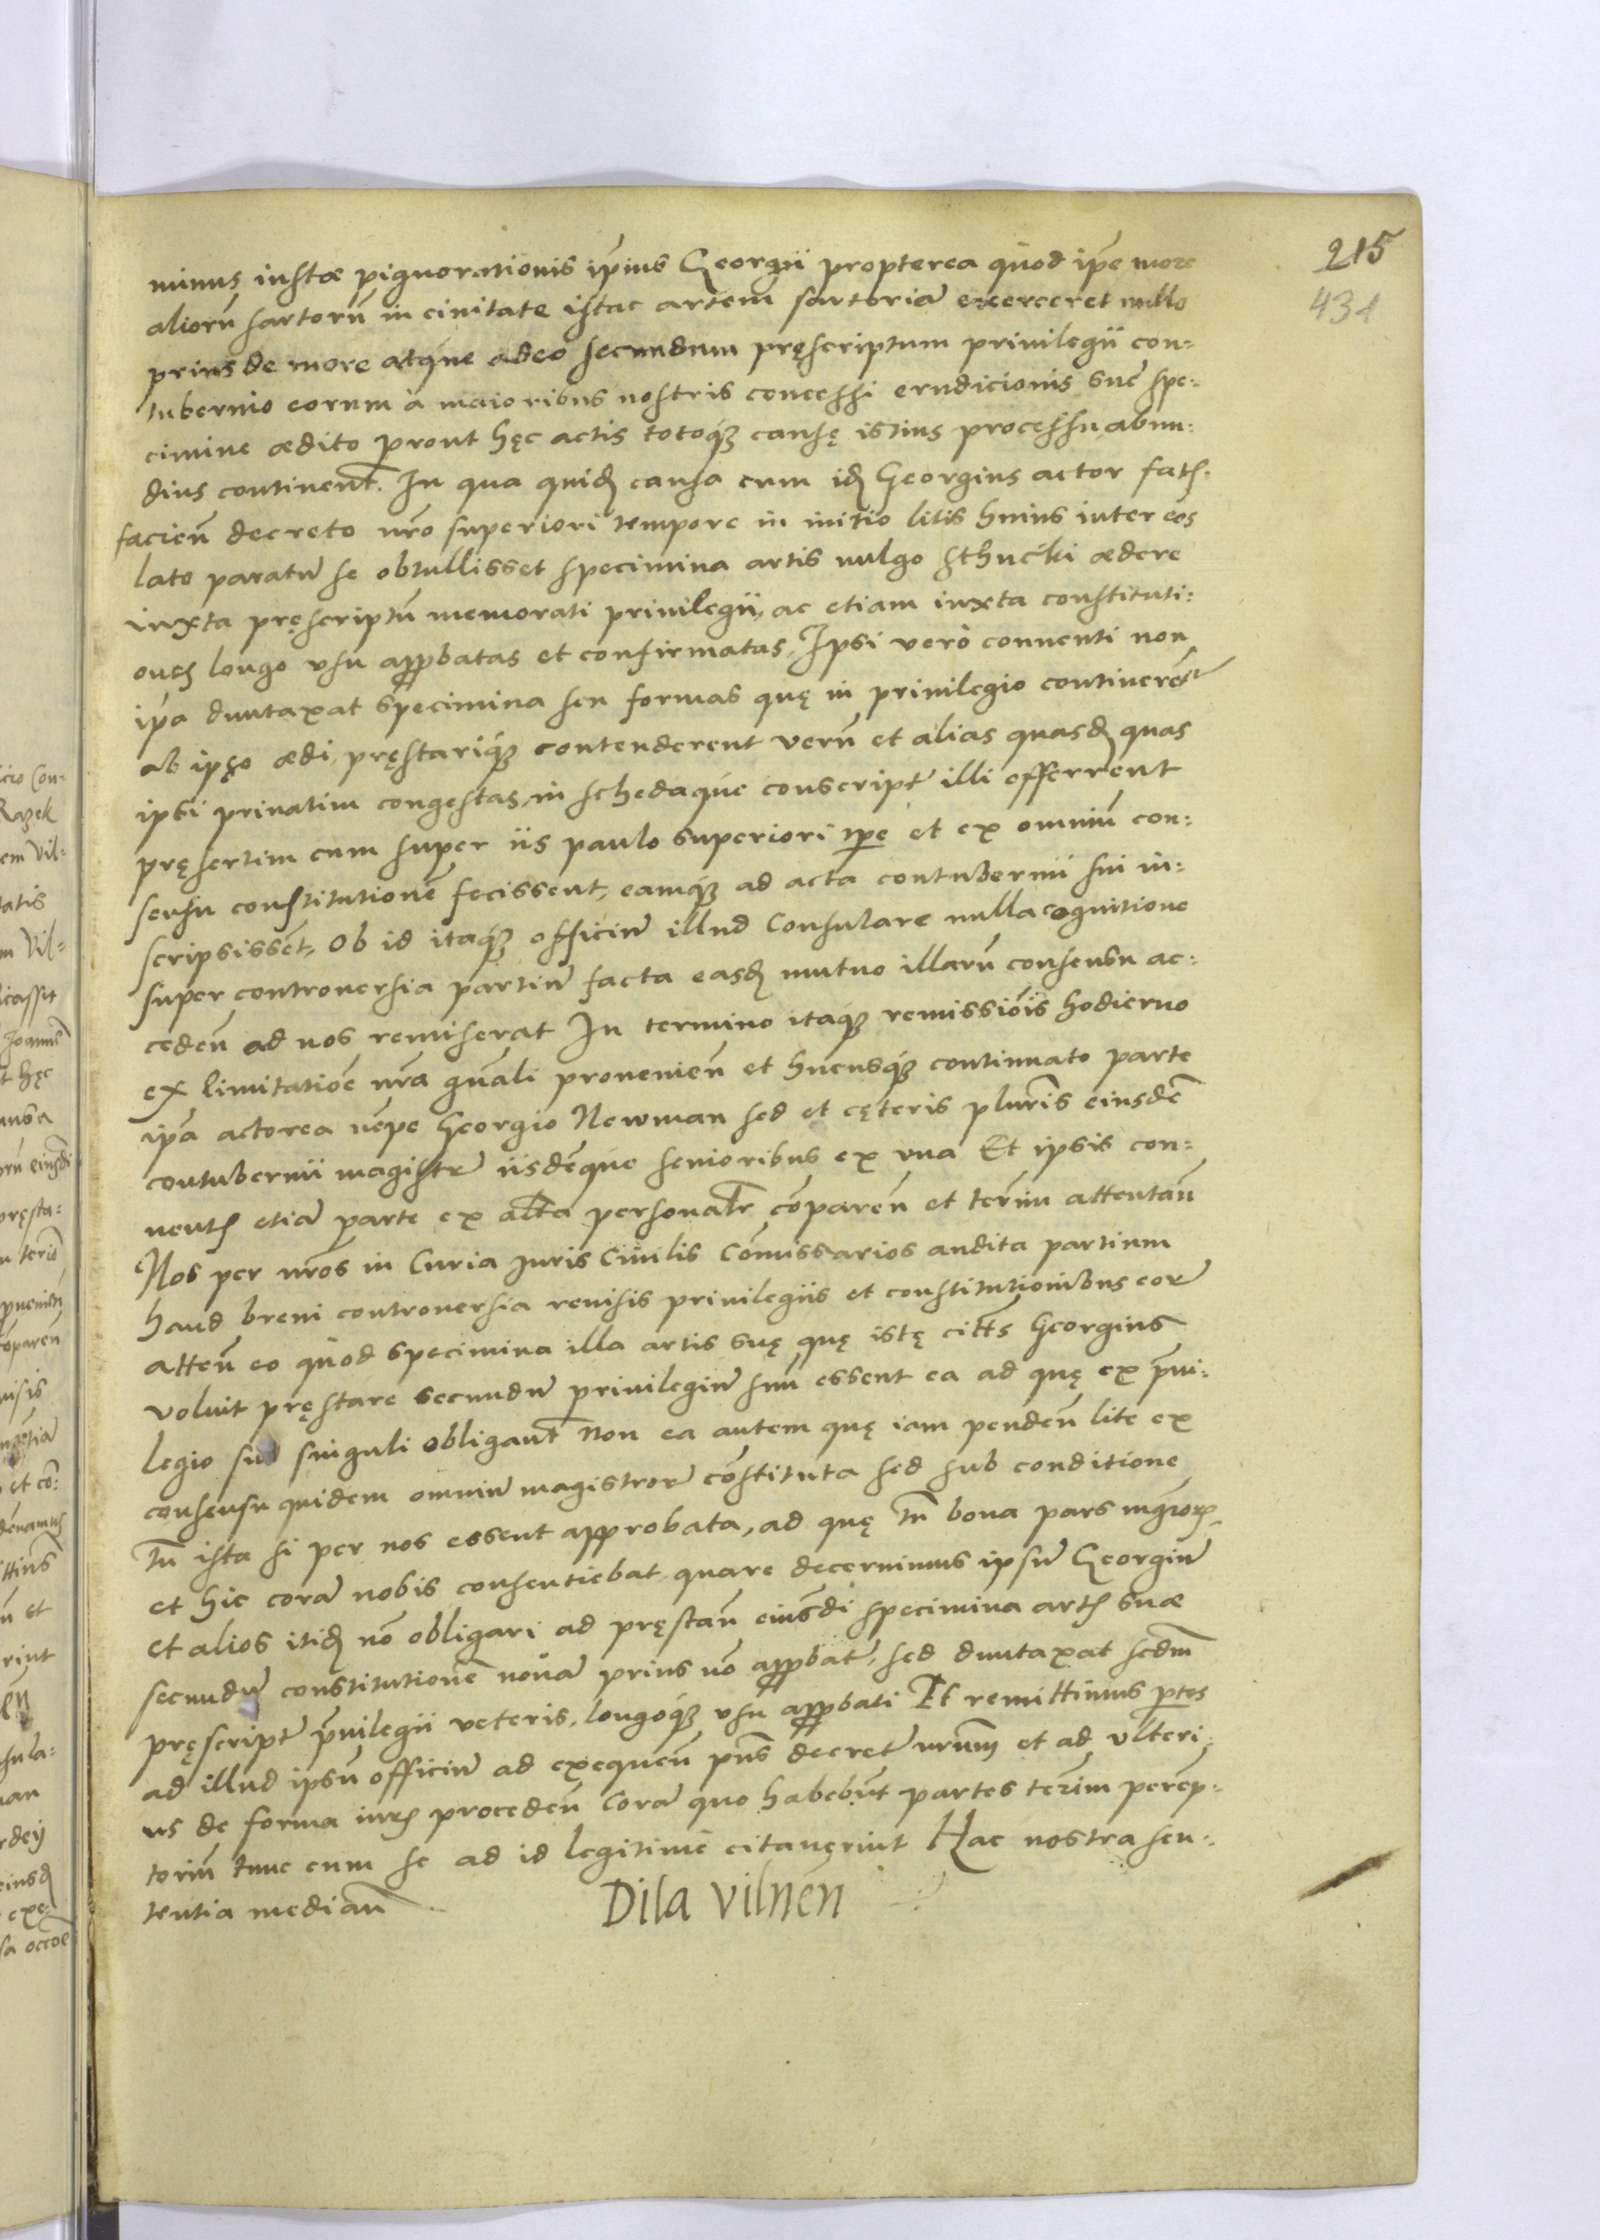 215
431
minus iustæ pignorationis ip̃ius Georgii propterea quòd ip̃e more
aliorũ sartorũ in ciuitate istac artem sartoriã exerceret nullo
prius de more atq́ue adeo secundum pręscriptum priuilegii con-
tubernio eorum à maioribus nostris concessi erudicionis suę spe-
cimine ædito prout hęc actis totoq́ꝫ causę istius processu abun-
dius continent̃. In qua quidꝫ causa cum idꝫ Georgius actor satis-
facieñ decreto nr̃o superiori tempore in initio litis huius inter eos
lato paratũ se obtullisset specimina artis uulgo sthucki ædere
iuxta pręscriptũ memorati priuilegii, ac etiam iuxta constituti-
ones longo vsu approbatas et confirmatas, Ipsi verò conuenti non
ip̃a duntaxat specimina seu formas quę in priuilegio continerẽt
ab ipso ædi, pręstariq́ꝫ contenderent verũ et alias quasdꝫ quas
ipsi priuatim congestas, in schedaq́ue conscriptas illi offerrent
pręsertim cum super iis paulo superiori tp̃e et ex omniũ con-
sensu constitutionẽ fecissent, eamq́ꝫ ad acta contubernii sui in-
scripsissẽt, Ob id itaq́ꝫ officiũ illud Consulare nulla cognitione
super controuersia partiũ facta easdꝫ mutuo illarũ consensu ac-
cedeñ ad nos remiserat In termino itaq́ꝫ remissiõis hodierno
ex limitatiõe nr̃a gñali prouenieñ et hucusq́ꝫ continuato parte
ip̃a actorea nẽpe Georgio Newman sed et cęteris plurĩs eiusdẽ
contubernii magistris iisdẽque senioribus ex vna Et ipsis con-
uentis etiã parte ex alt̃a personalr̃ cõpareñ et termĩ attentañ
Nos per nr̃os in Curia Iuris Ciuilis Cõmissarios audita partium
haud breui controuersia reuisis priuilegiis et constitutionibus eorũ
atteñ eo quòd specimina illa artis suę quę istę citt̃s Georgius
voluit pręstare secundũ priuilegiũ suũ essent ea ad quę ex p̃ui-
legio suo singuli obligant̃ Non ea autem quę iam pendeñ lite ex
consensu quidem omniũ magistrorũ cõstituta sed sub conditione
tñ ista si per nos essent approbata, ad quę tñ bona pars mgr̃orꝫ
et hic corã nobis consentiebat quare decernimus ipsũ Georgiũ
et alios itidꝫ nõ obligari ad pręstañ eiusd̃i specimina artis suæ
secundũ constitutionẽ nouã prius nõ approbatã, sed duntaxat scdm̃
pręscriptũ p̃uilegii veteris, longoq́ꝫ vsu approbati Et remittimus partes
ad illud ipsũ officiũ ad exequeñ pñs decretũ nrũm et ad vlteri-
us de forma iuris procedeñ Corã quo habebũt partes ter̃im perẽp-
toriũ tunc cum se ad id legitime citauerint Hac nostra sen-
tentia mediañ
Dila Vilnẽn